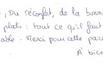 , Du réconfort, de la bonn
plats : tout ce qu'il faut
able. Merci pour cette pau
A bien